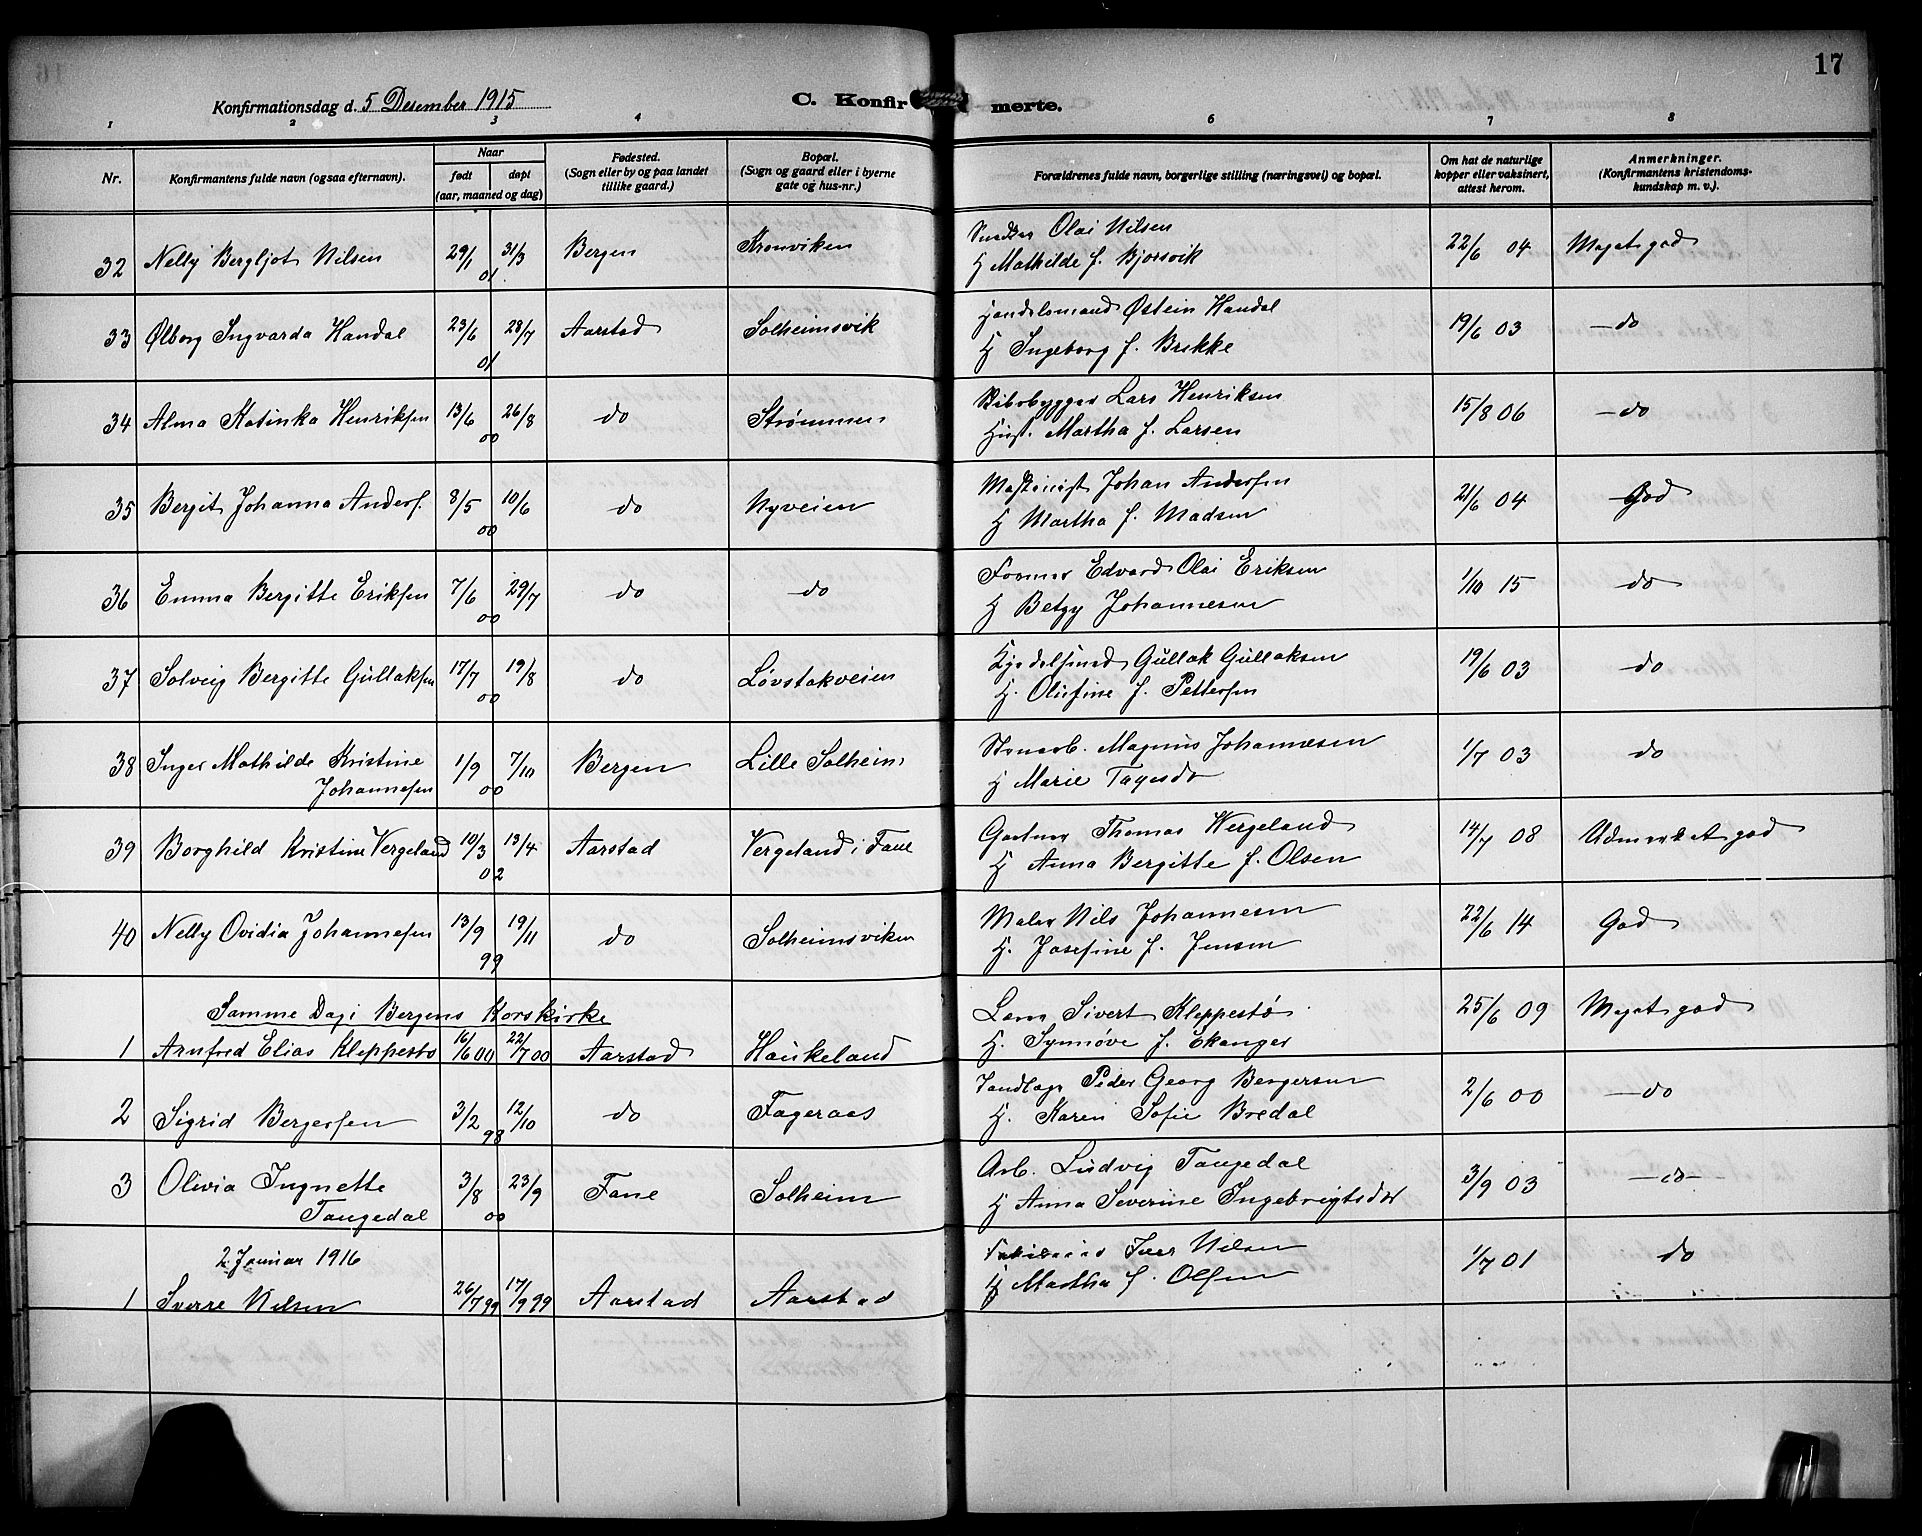 17
Konfirmationsdag d. 5 Desember 1915
C. Konfirmerte.
1 2 3 4 5 6 7 8
Nr.
Konfirmantens fulde navn (ogsaa efternavn).
Naar
født
døpt
(aar, maaned og dag)
Fødested.
(Sogn eller by og paa landet
tillike gaard.)
Bopæl.
(Sogn og gaard eller i byerne
gate og hus-nr.)
Forældrenes fulde navn, borgerlige stilling (næringsvei) og bopæl.
Om hat de naturlige
kopper eller vaksinert,
attest herom.
Anmerkninger.
(Konfirmantens kristendoms-
kundskap m. v.).
32 Nelly Bergljot Nilsen 29/1 31/3 01 Bergen Kronviken
Olai Nilsen
H Mathilde f. Bjorsvik
22/6 04 Meget god
33 Ølborg Ingvarda Handal 23/6 28/7 01 Aarstad Solheimsvik
Handelsmand Østein Handal
H Ingeborg f. Brekke
19/6 03 - do
34 Alma Katinka Henriksen 13/6 26/8 00 do Strømmen
Skibsbygger Lars Henriksen
Hust. Martha f. Larsen
15/8 06 - do
35 Bergit Johanna Anders. 8/5 10/6 00 do Nyveien
Maskinist Johan Andersen
H Martha f. Madsen
21/6 04 God
36 Emma Bergitte Eriksen 7/6 29/7 00 do do
Former Edvard Olai Eriksen
H Betzy Johannesen
1/10 15 do
37 Solveig Bergitte Gullaksen 17/7 19/8 00 do Løvstakveien
Gullak Gullaksen
H. Olufine f. Pettersen
19/6 03 do
38 Inger Mathilde Kristine
Johannesen 1/9 7/10 00 Bergen Lille Solheim
Stenarb. Magnus Johannesen
H Marie
1/7 03 do
39 Borghild Kristine Vergeland 10/3 13/4 02 Aarstad Vergeland i Fane
Gartner Thomas Wergeland
H Anna Bergitte f. Olsen
14/7 08 Udmerket god
40 Nelly Ovidia Johannesen 13/9 19/11 99 do Solheimsviken
Maler Nils Johannesen
H. Josefine f. Jensen
22/6 14 God
Samme Dag i Bergens Korskirke
1 Arnfred Elias Kleppestø 16/6 00 22/7 00 Aarstad Haukeland
Sivert Kleppestø
H. Synnøve f. Ekanger
25/6 09 Meget god
2 Sigrid Bergersen 3/2 12/10 98 do Fageraas
Tandlæge Peder Georg Bergersen
H. Karen Sofie Bredal
2/6 00 - do
3 Olivia Ingnette
Tangedal 3/8 23/9 00 Fane Solheim
Arb. Ludvig Tangedal
H Anna Severine Ingebrigtsdtr
3/9 03 - do -
2 Januar 1916
1 Sverre Nilsen 26/7 99 17/9 99 Aarstad Aarstad
Iver Nilsen
H Martha f. Olsen
1/7 01 do